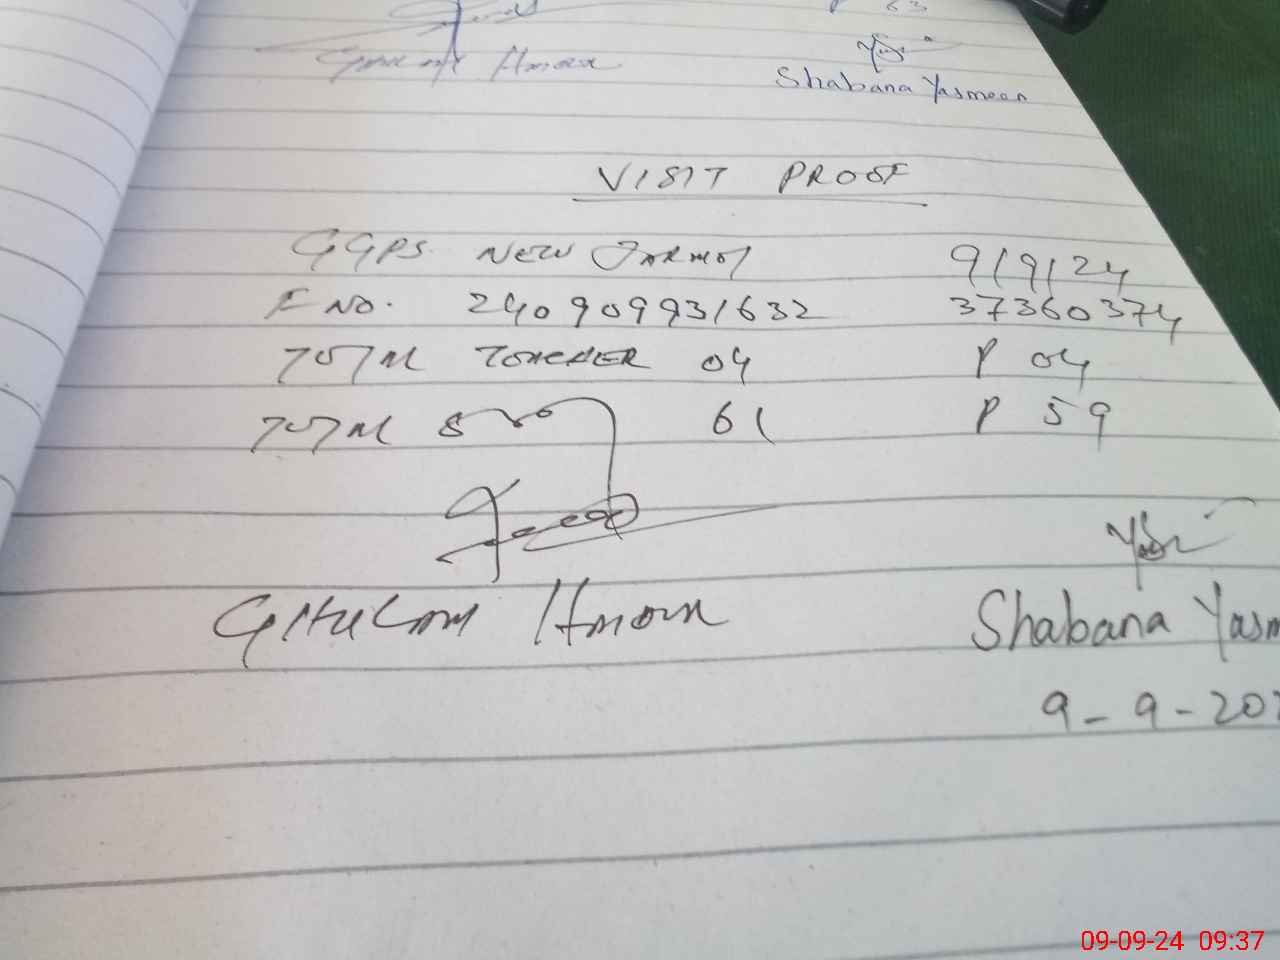 P 63
Shabana Yasmeen
VISIT PROOF
GGPS NEW 9/9/24
F NO. 240909931632 37360374
TOTAL TEACHER 04 P 04
TOTAL 61 P 59
GHULAM
Shabana Yasm
9-9-202
09-09-24 09:37